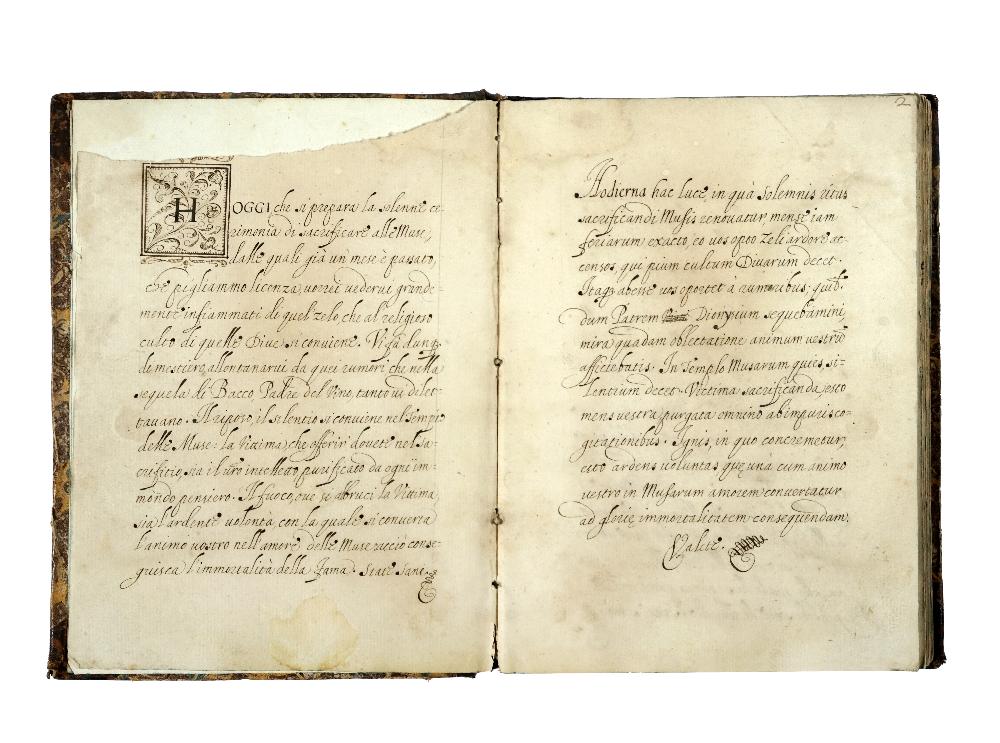 HOGGI che si prepara la solenne ce-
rimonia di sacrificare alle Muse,
dalle quali già un mese è passato,
che pigliammo licenza, vorrei vederui grande-
mente infiammati di quel zelo, che al religioso
culto di quelle Diue si conviene. Vi fà dunq;
di mestiero allontanarui da quei rumori che nella
sequela di Bacco Padre del Vino, tanto ui dilet-
tauano. Il riposo, il silentio si conviene nel Tempio
delle Muse: la Vittima, che offerir douete nel Sa-
crifitio, sia il uro intelletto, purificato da ogni im-
mondo pensiero. Il fuoco, oue si abbruci la Vittima,
sia l'ardente uolontà, con la quale si conuerta
l'animo uostro nell'amore delle Muse acciò conse-
guisca l'immortalità della fama. State sani.
2
Hodierna hac luce, in quà solemnis ritus
sacrificandi Musis renouatur mense iam
feriarum exacto, eo uos opto zeli ardore ac-
censos, qui pium cultum Diuarum decet.
Itaq; abesse uos oportet a rumoribus, quib.
dum Patrem Dionysium sequebamini,
mira quadam oblectatione animum uestrũ
afficiebatis. In Templo Musarum quies, si-
lentium decet. Victima sacrificanda, esto
mens uestra, purgata omnino ab impuris co-
gitationibus. Ignis, in quo concremetur,
esto ardens uoluntas quę unà cum animo
uestro in Musarum amorem conuertatur
ad glorię immortalitatem consequendam.
Valete.